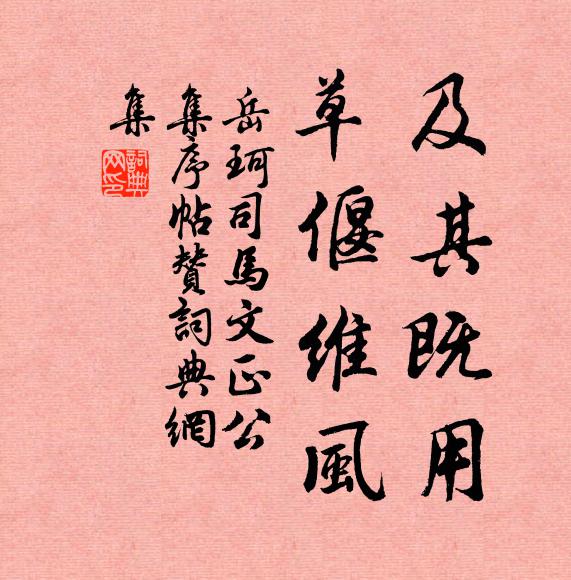 及其既用
草偃維風
岳珂司馬文正公
集序帖贊詞典網
集
詞典網印